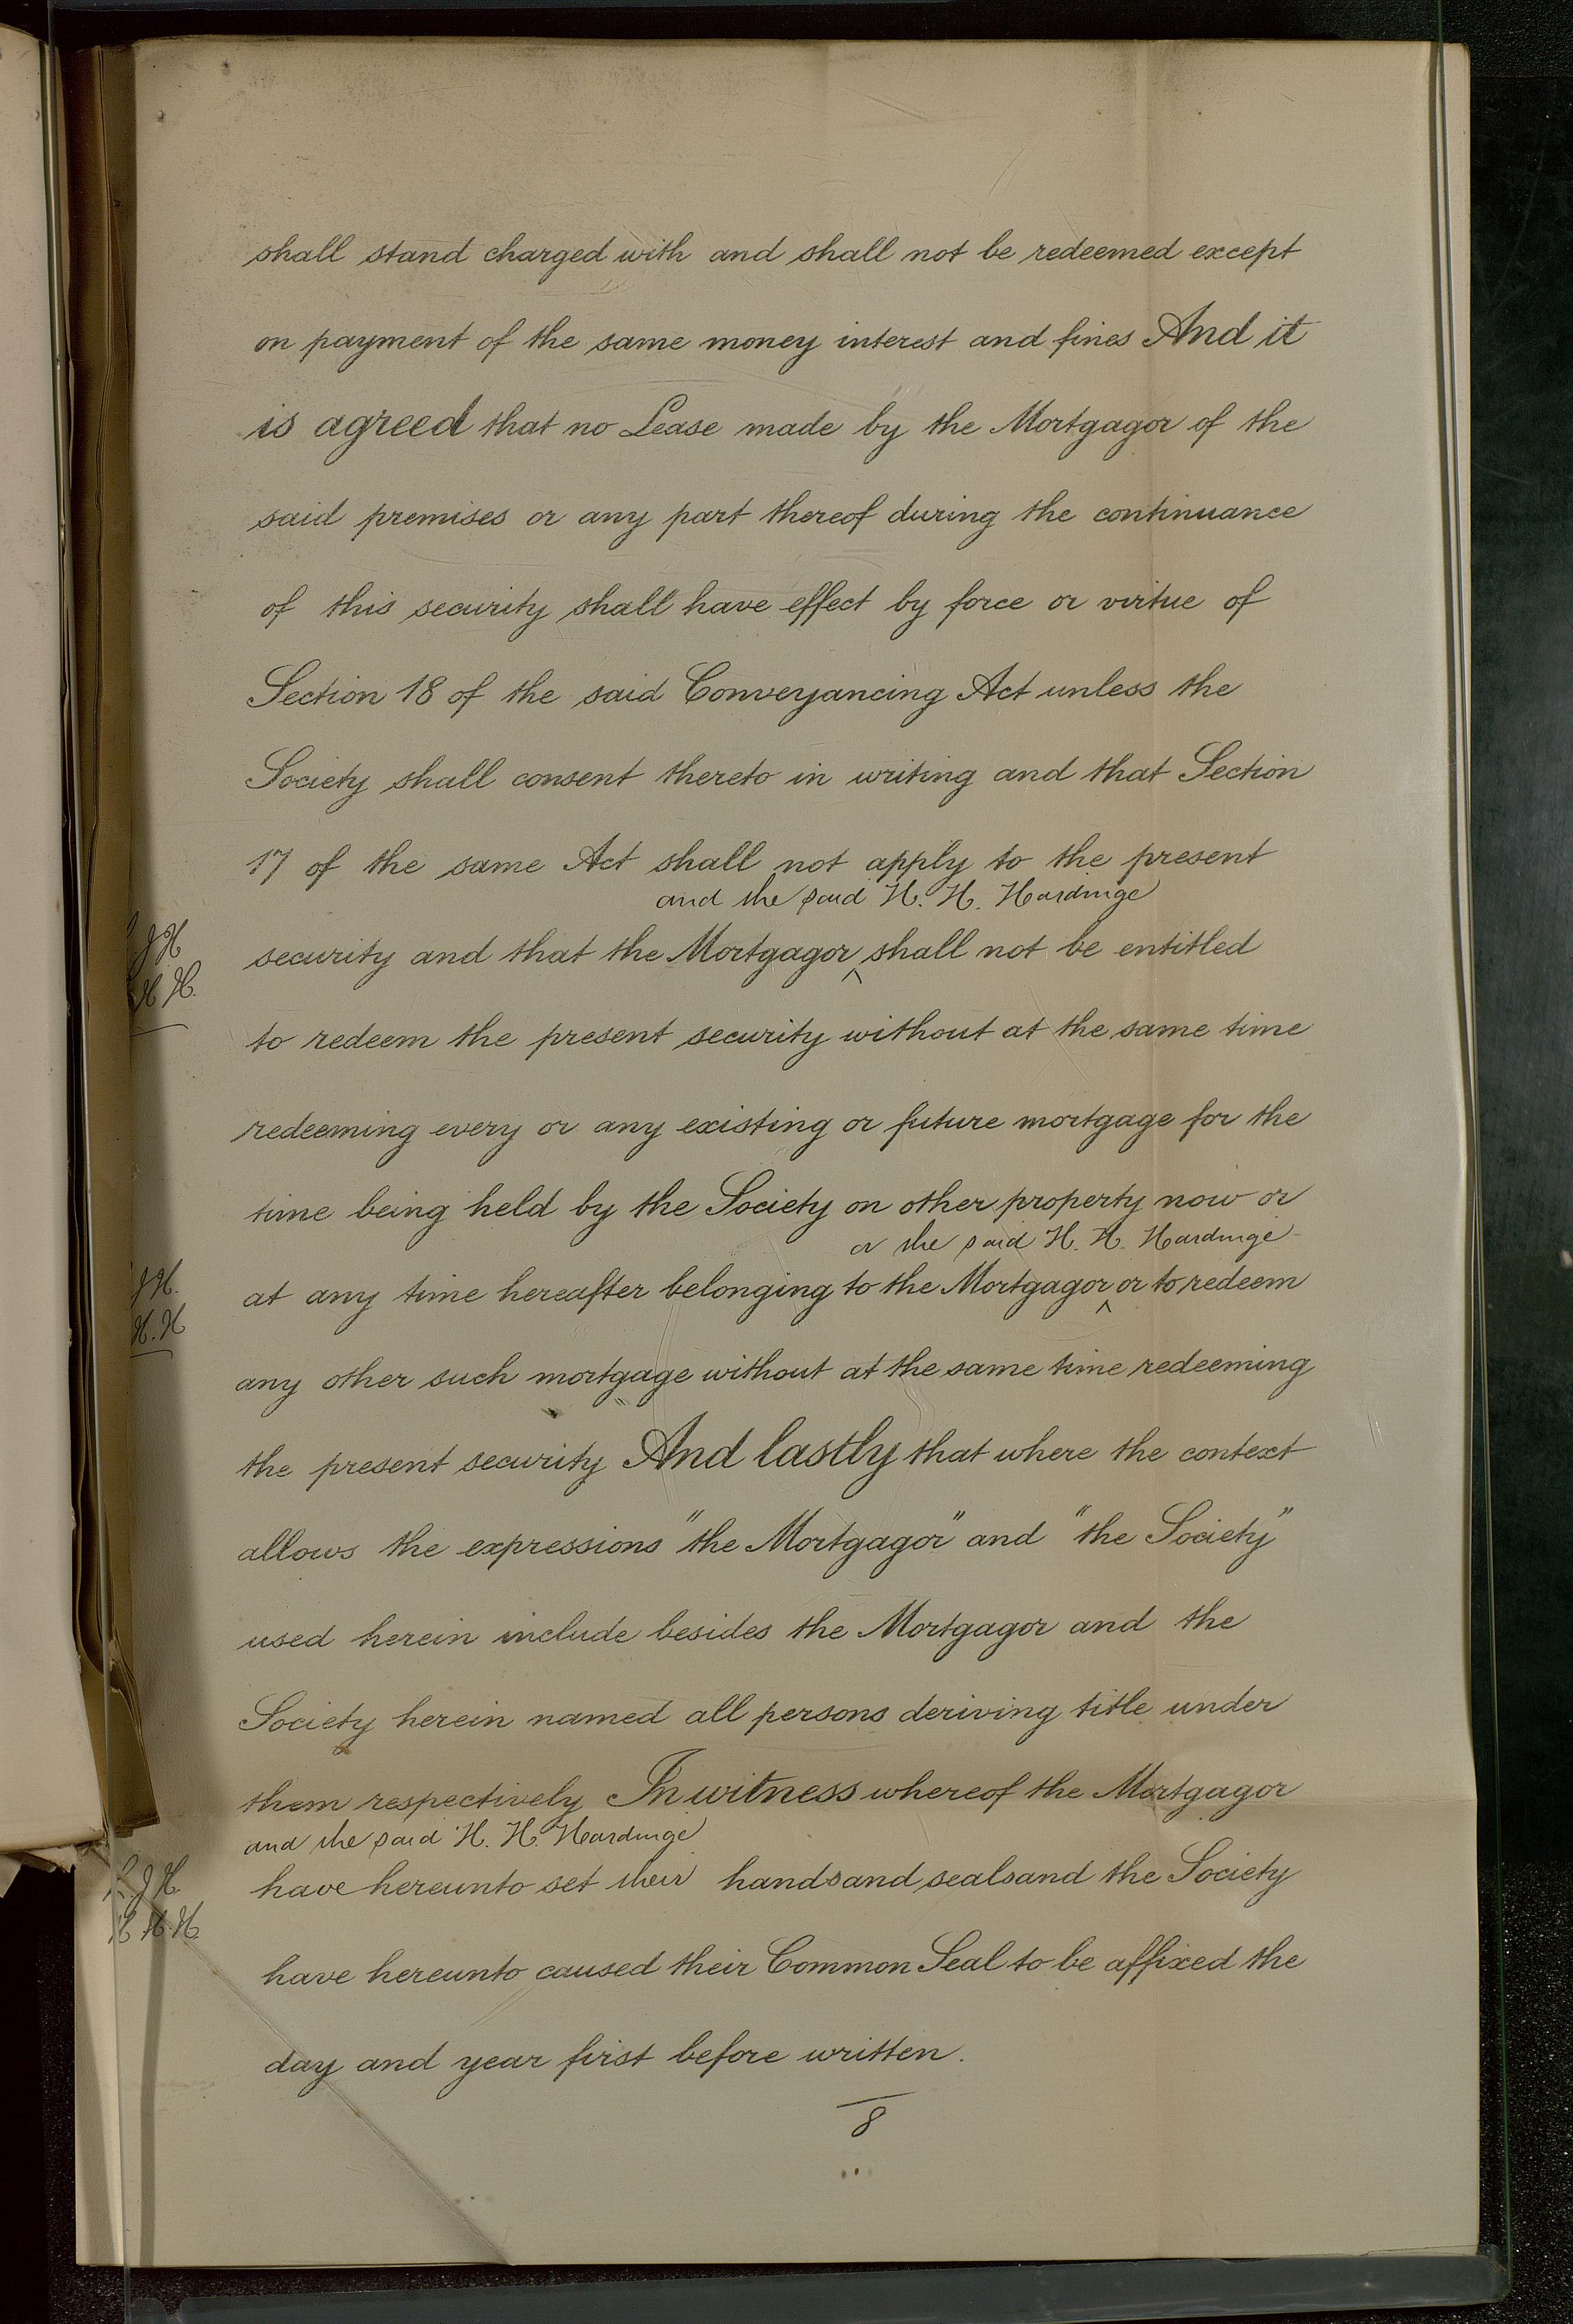 shall stand charged with and shall not be redeemed except
on payment of the same money interest and fines And it
is agreed that no Lease made by the Mortgagor of the
said premises or any part thereof during the continuance
of this security shall have effect by force or virtue of
Section 18 of the said Conveyancing Act unless the
Society shall consent thereto in writing and that Section
17 of the same Act shall not apply to the present
and the said H. H. Hardinge
J H
security and that the Mortgagor ^ shall not be entitled
H H.
to redeem the present security without at the same time
redeeming every or any existing or future mortgage for the
time being held by the Society on other property now or
or the said H. H. Hardinge
J H.
at any time hereafter belonging to the Mortgagor ^ or to redeem
H. H
any other such mortgage without at the same time redeeming
the present security And lastly that where the context
allows the expressions "the Mortgagor" and "the Society"
used herein include besides the Mortgagor and the
Society herein named all persons deriving title under
them respectively In witness whereof the Mortgagor
and the said H. H. Hardinge
J H.
have hereunto set their hands and seals and the Society
H. H.
have hereunto caused their Common Seal to be affixed the
day and year first before written.
8